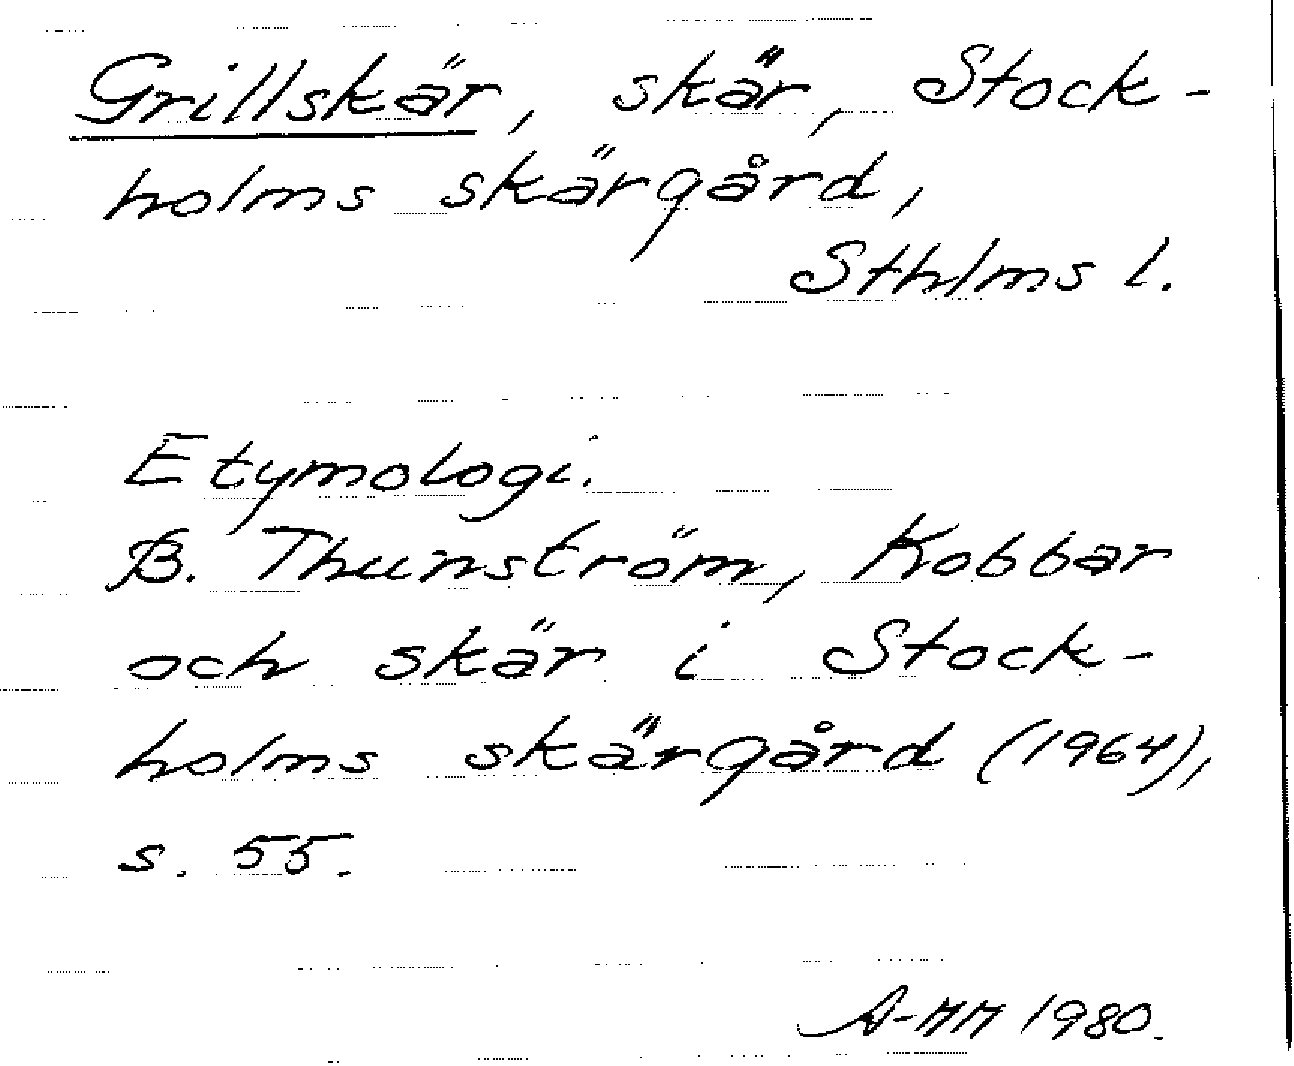 Grillskär, skär, Stock-
holms skärgård,
Sthlms l.
Etymologi.
B. Thunström, Kobbar
och skär i Stock-
holms skärgård (1964),
s. 55.
A-MM 1980.